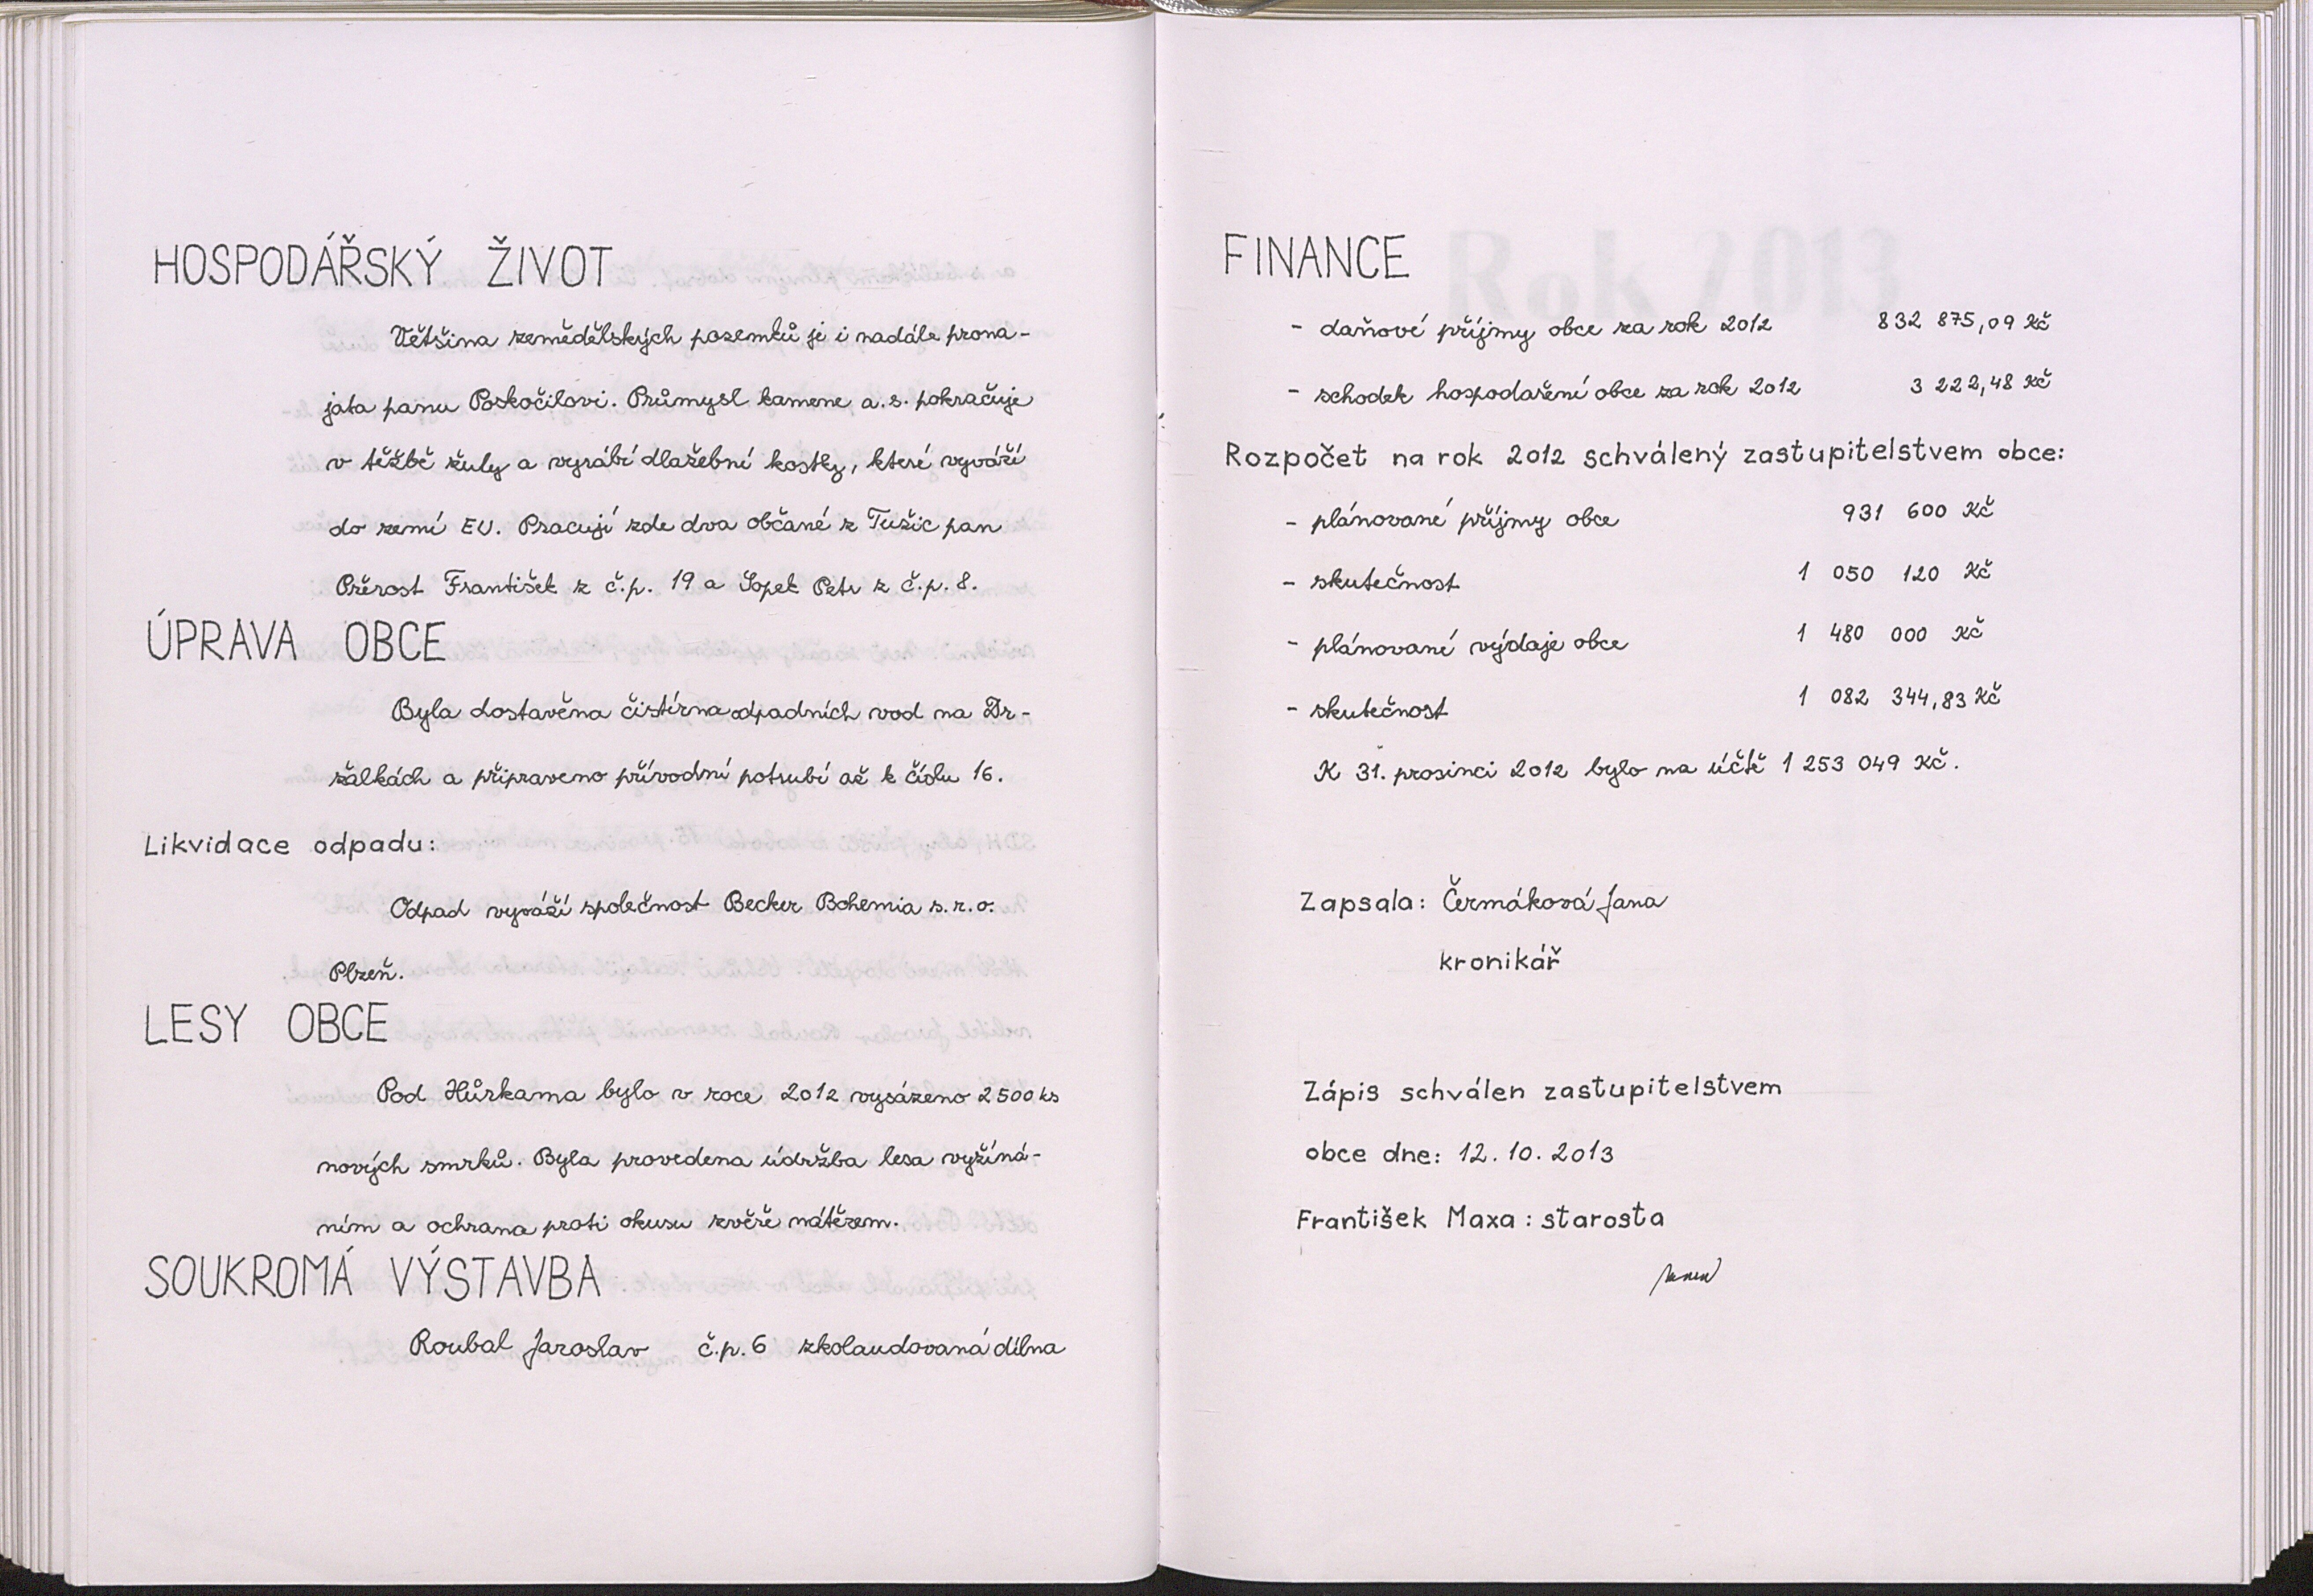 HOSPODÁŘSKÝ ŽIVOT
Většina zemědělských pozemků je i nadále prona-
jata panu Poskočilovi. Průmysl kamene a.s. pokračuje
v těžbě žuly a vyrábí dlažební kostky, které vyváží
do zemí EU. Pracují zde dva občané z Tužic pan
Přerost František z č.p. 19 a Šopek Petr z č.p. 8.
ÚPRAVA OBCE
Byla dostavěna čistírna odpadních vod na Dr-
žálkách a připraveno přívodní potrubí až k číslu 16.
Likvidace odpadu:
Odpad vyváží společnost Becker Bohemia s.r.o.
Plzeň.
LESY OBCE
Pod Hůrkama bylo v roce 2012 vysázeno 2500 ks
nových smrků. Byla provedena údržba lesa vyžíná-
ním a ochrana proti okusu zvěře nátěrem.
SOUKROMÁ VÝSTAVBA
Roubal Jaroslav č.p. 6 zkolaudovaná dílna
FINANCE
- daňové příjmy obce za rok 2012 832 875,09 Kč
- schodek hospodaření obce za rok 2012 3 222,48 Kč
Rozpočet na rok 2012 schválený zastupitelstvem obce:
- plánované příjmy obce 931 600 Kč
- skutečnost 1 050 120 Kč
- plánované výdaje obce 1 480 000 Kč
- skutečnost 1 082 344,83 Kč
K 31. prosinci 2012 bylo na účtě 1 253 049 Kč.
Zapsala: Čermáková Jana
kronikář
Zápis schválen zastupitelstvem
obce dne: 12.10.2013
František Maxa : starosta